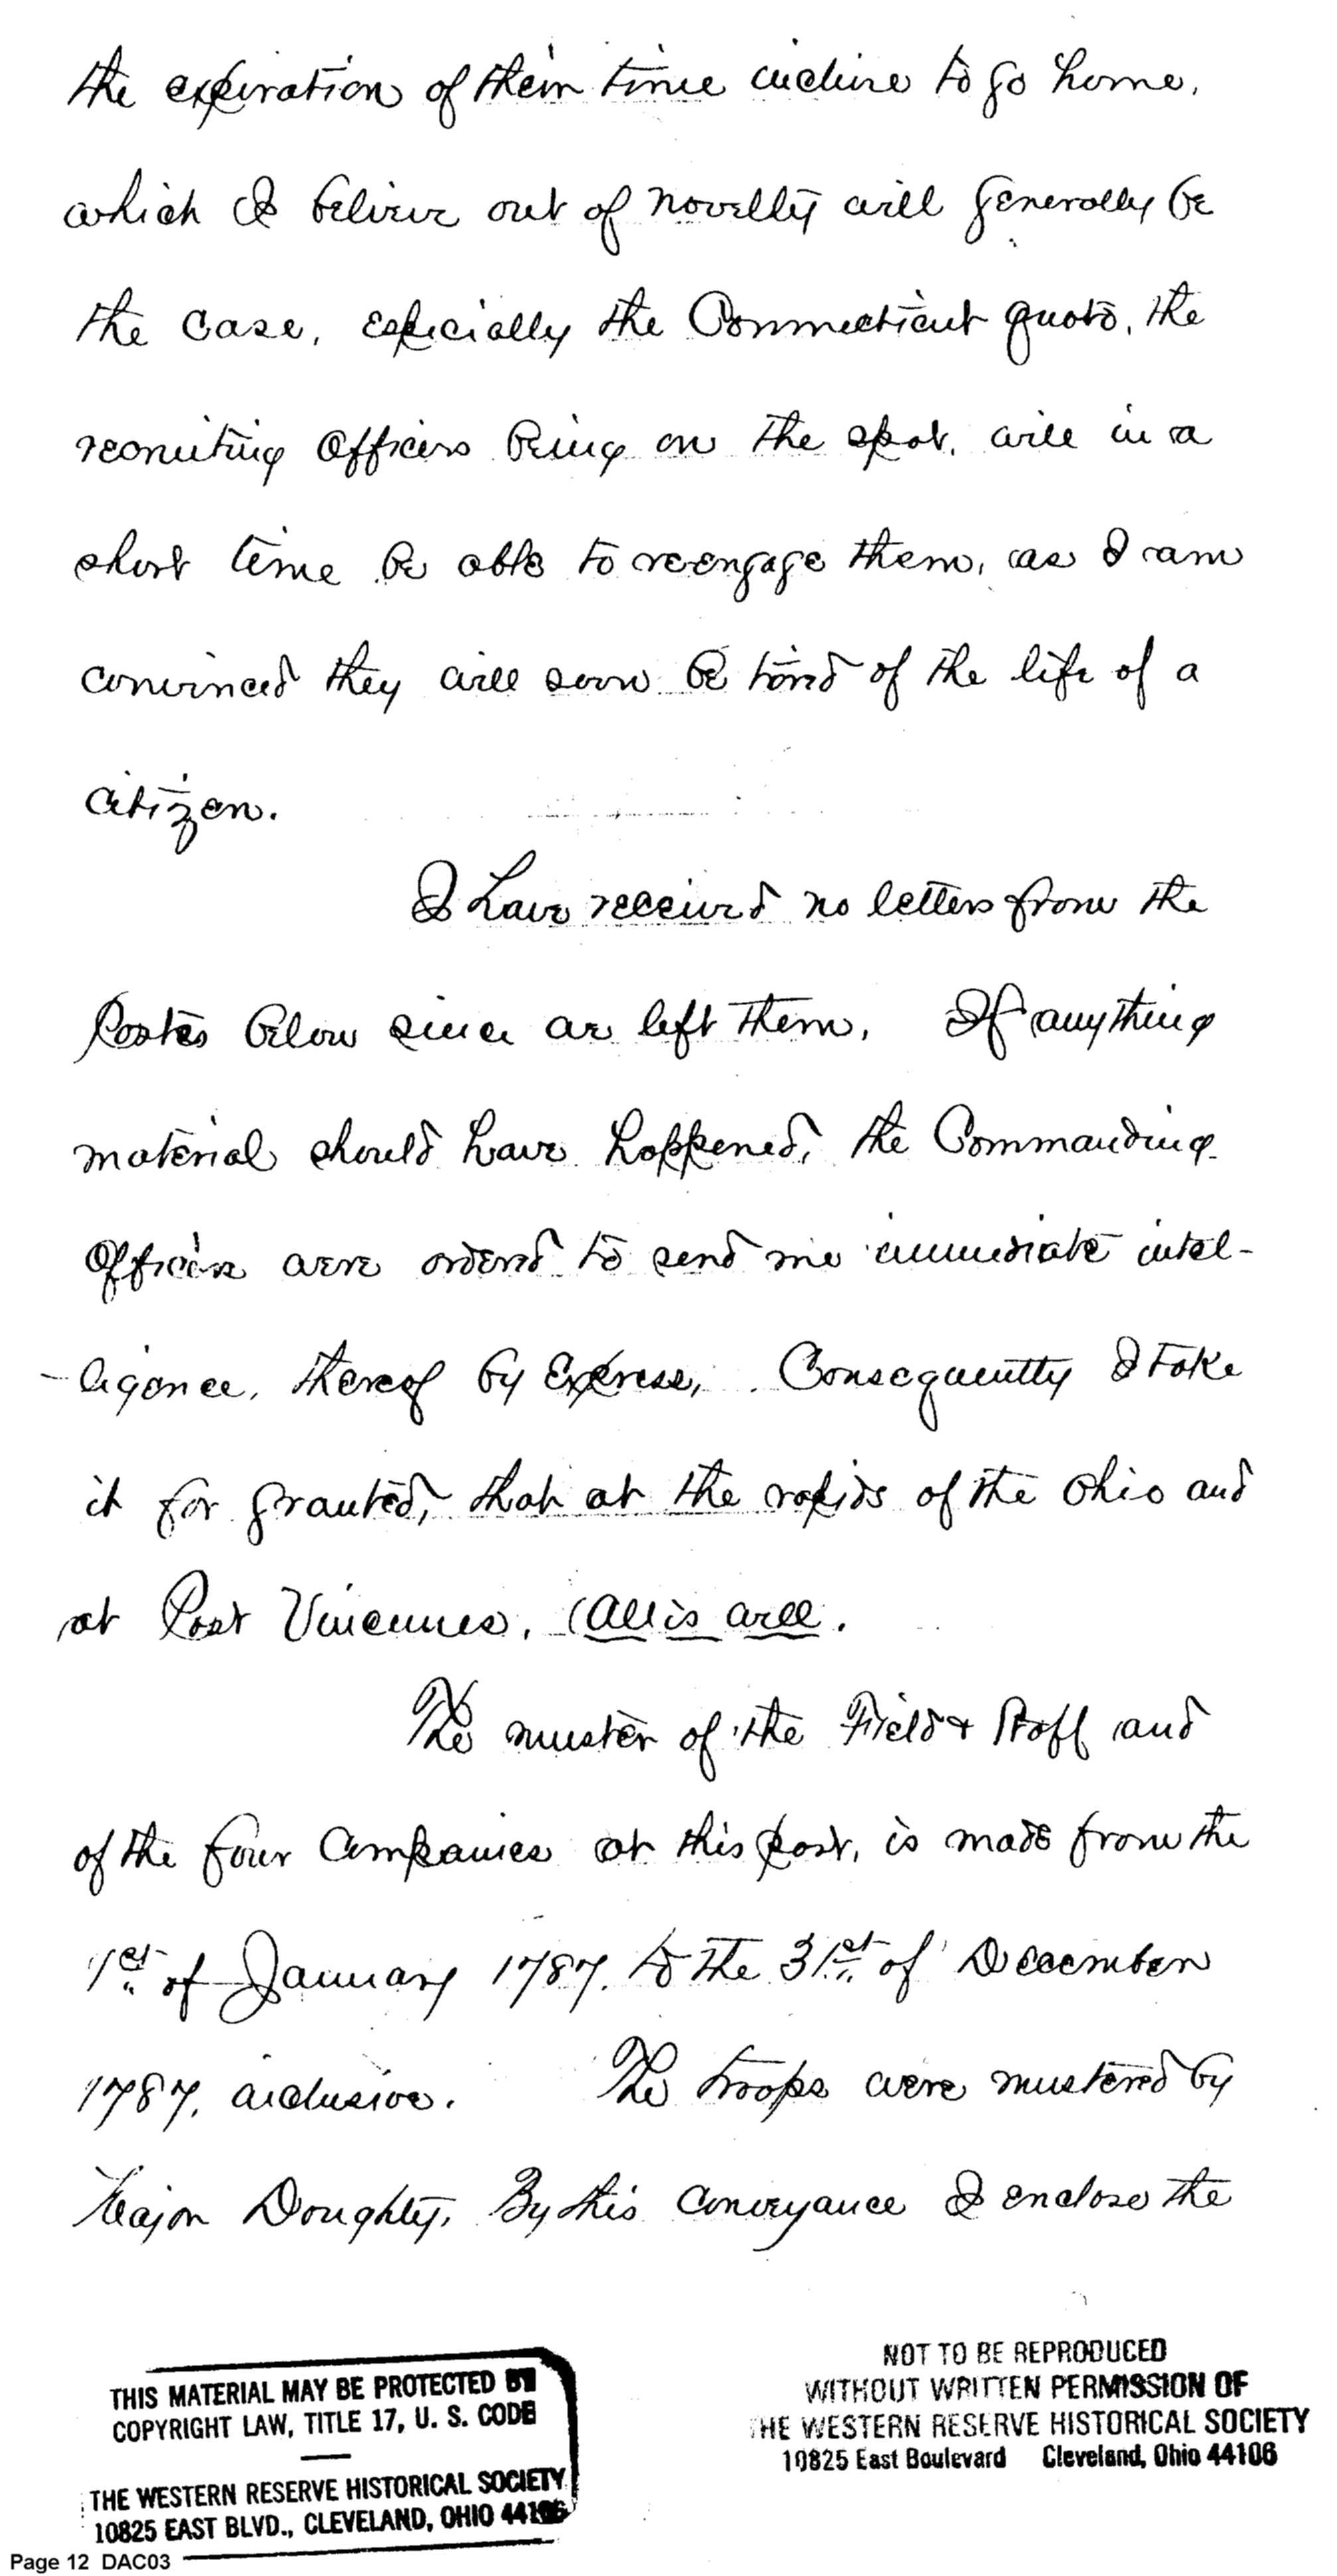 the expiration of their time incline to go home,
which I believe out of novelty will generally be
the case, especially the Connecticut quota, the
recruiting Officers being on the spot, will in a
short time be able to reengage them, as I am
convinced they will soon be tired of the life of a
citizen.
I have received no letters from the
Posts below since we left them, If anything
material should have happened, the Commanding
Officers were ordered to send me immediate intel-
-ligence, thereof by Express, Consequently I take
it for granted, that at the rapids of the Ohio and
at Post Vincennes, (All is well.
The muster of the Field & Staff and
of the four Companies at this post, is made from the
1st of January 1787. to the 31st of December
1787, inclusive. The troops were mustered by
Major Doughty, By this conveyance I enclose the
THIS MATERIAL MAY BE PROTECTED BY
COPYRIGHT LAW, TITLE 17, U. S. CODE
THE WESTERN RESERVE HISTORICAL SOCIETY
10825 EAST BLVD., CLEVELAND, OHIO 44106
NOT TO BE REPRODUCED
WITHOUT WRITTEN PERMISSION OF
THE WESTERN RESERVE HISTORICAL SOCIETY
10825 East Boulevard Cleveland, Ohio 44106
Page 12 DAC03